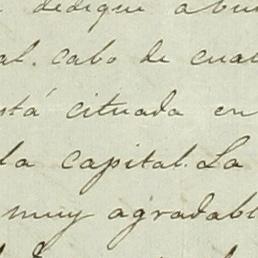 dedique abu
al. cabo de cual
está cituada en
la capital. La
muy agradabl